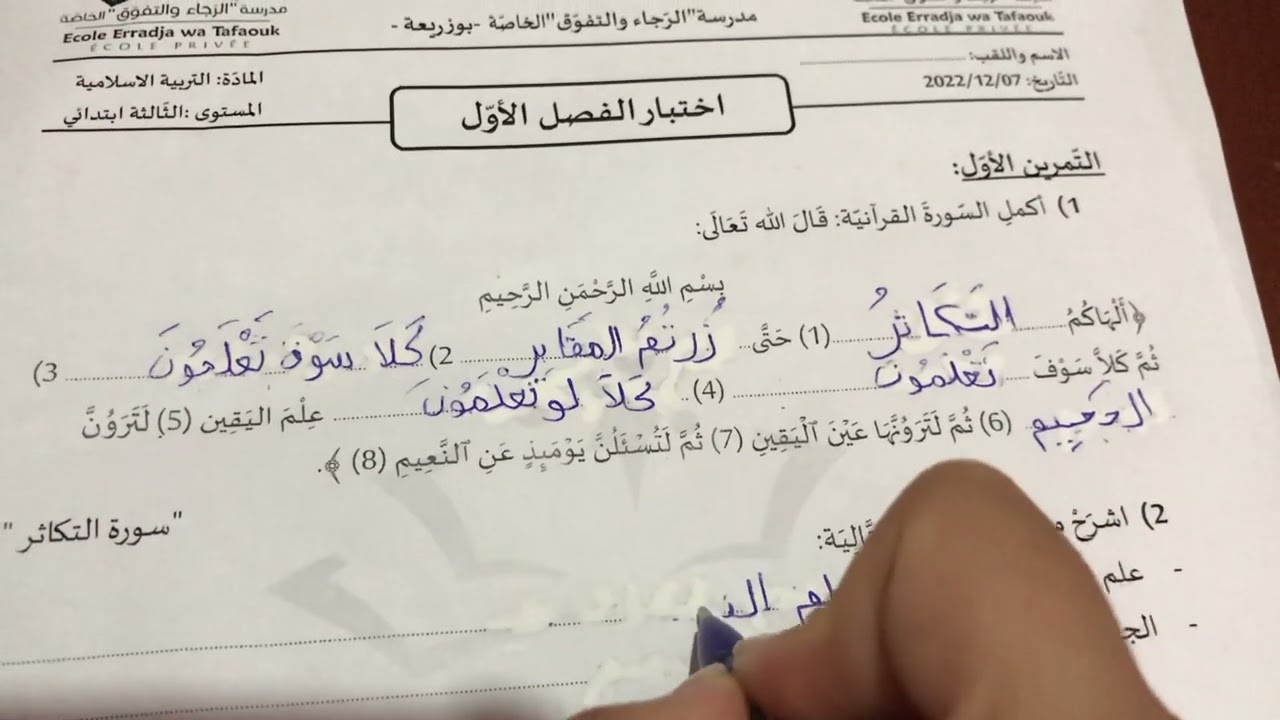 مدرسة "الرّجاء والتفوّق" الخاصّة -بوزريعة -
Ecole Erradja wa Tafaouk
ÉCOLE PRIVÉE
مدرسة "الرجاء والتفوق" الخاصة
Ecole Erradja wa Tafaouk
ÉCOLE PRIVÉE
الاسم واللقب:
المادّة: التربية الاسلامية
التّاريخ: 2022/12/07
المستوى :الثّالثة ابتدائي
اختبار الفصل الأوّل
التّمرين الأوّل:
1) أكمل السّورةَ القرآنيّة: قَالَ الله تَعَالَى:
بِسْمِ اللَّهِ الرَّحْمَنِ الرَّحِيمِ
﴿أَلْهَاكُمُ التَّكَاثُرُ (1) حَتَّى زُرْتُمُ المَقَابِر (2 كَلَا سَوْفَ تَعْلَمُونَ (3
ثُمَّ كَلاَّ سَوْفَ تَعْلَمُونَ (4) كَلاَ لَوْ تَعْلَمُونَ عِلْمَ اليَقِين (5) لَتَرَوُنَّ
الجَحِيم (6) ثُمَّ لَتَرَوُنَّهَا عَيْنَ ٱلْيَقِينِ (7) ثُمَّ لَتُسْـَٔلُنَّ يَوْمَئِذٍ عَنِ ٱلنَّعِيمِ (8) ﴾.
"سورة التكاثر"
2) اشرَحْ
- علم